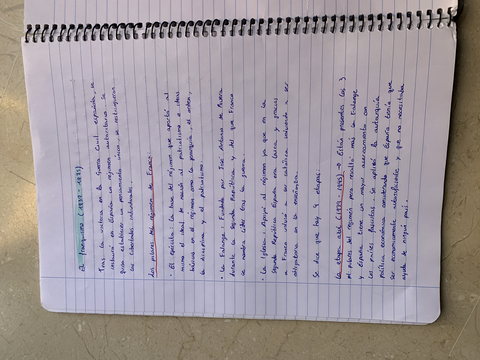 El franquismo (1939-1975)
Tras la victoria en la Guerra Civil española, se
instauró en España un régimen autoritario la
quiso establecer un pensamiento único, se extinguieron
las libertades individuales.
Los pilares del régimen de Franco:
· El ejército: la base del régimen que aportó al
mismo el ideas de nación al patriotismo e ideas
básicos en el régimen como la jerarquía, el orden,
la disciplina y el patriotismo.
· La Falange: Fundada por José Antonio de Rivera
durante la Segunda República y del que Franco
se nombra líder tras la guerra.
· La Iglesia: Apoyó al régimen ya que en la
Segunda República España era laica y gracias
a Franco volvió a ser católica volviendo a ser
obligatoria en la enseñanza.
Se dice que hay 4 etapas:
La etapa azul (1939-1945) → Están presentes los 3
pilares del régimen pero resalta más la Falange
y España tiene un mayor acercamiento con
los países fascistas. Se aplicó la autarquía
política económica considerando que España tenía que
ser económicamente autosuficiente y que no necesitaba
ayuda de ningún país.